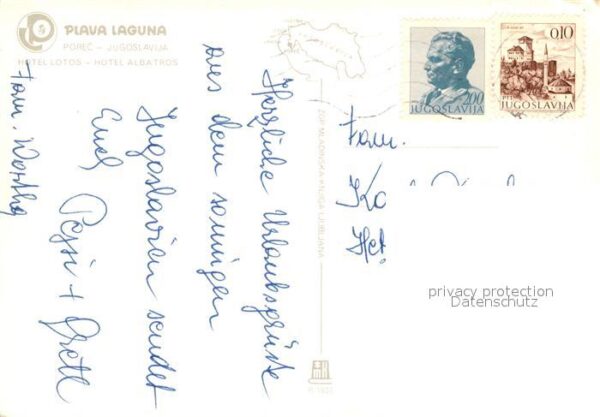 PLAVA LAGUNA
POREČ - JUGOSLAVIJA
HOTEL LOTOS - HOTEL ALBATROS
2.00
JUGOSLAVIJA
0,10
PTT
JUGOSLAVIJA
Herzliche Urlaubsgrüße
aus dem sonnigen
Jugoslavien sendet
Euch Pepi + Gretl
Fam.
ZGP MLADINSKA KNJIGA LJUBLJANA
Fam.
privacy protection
Datenschutz